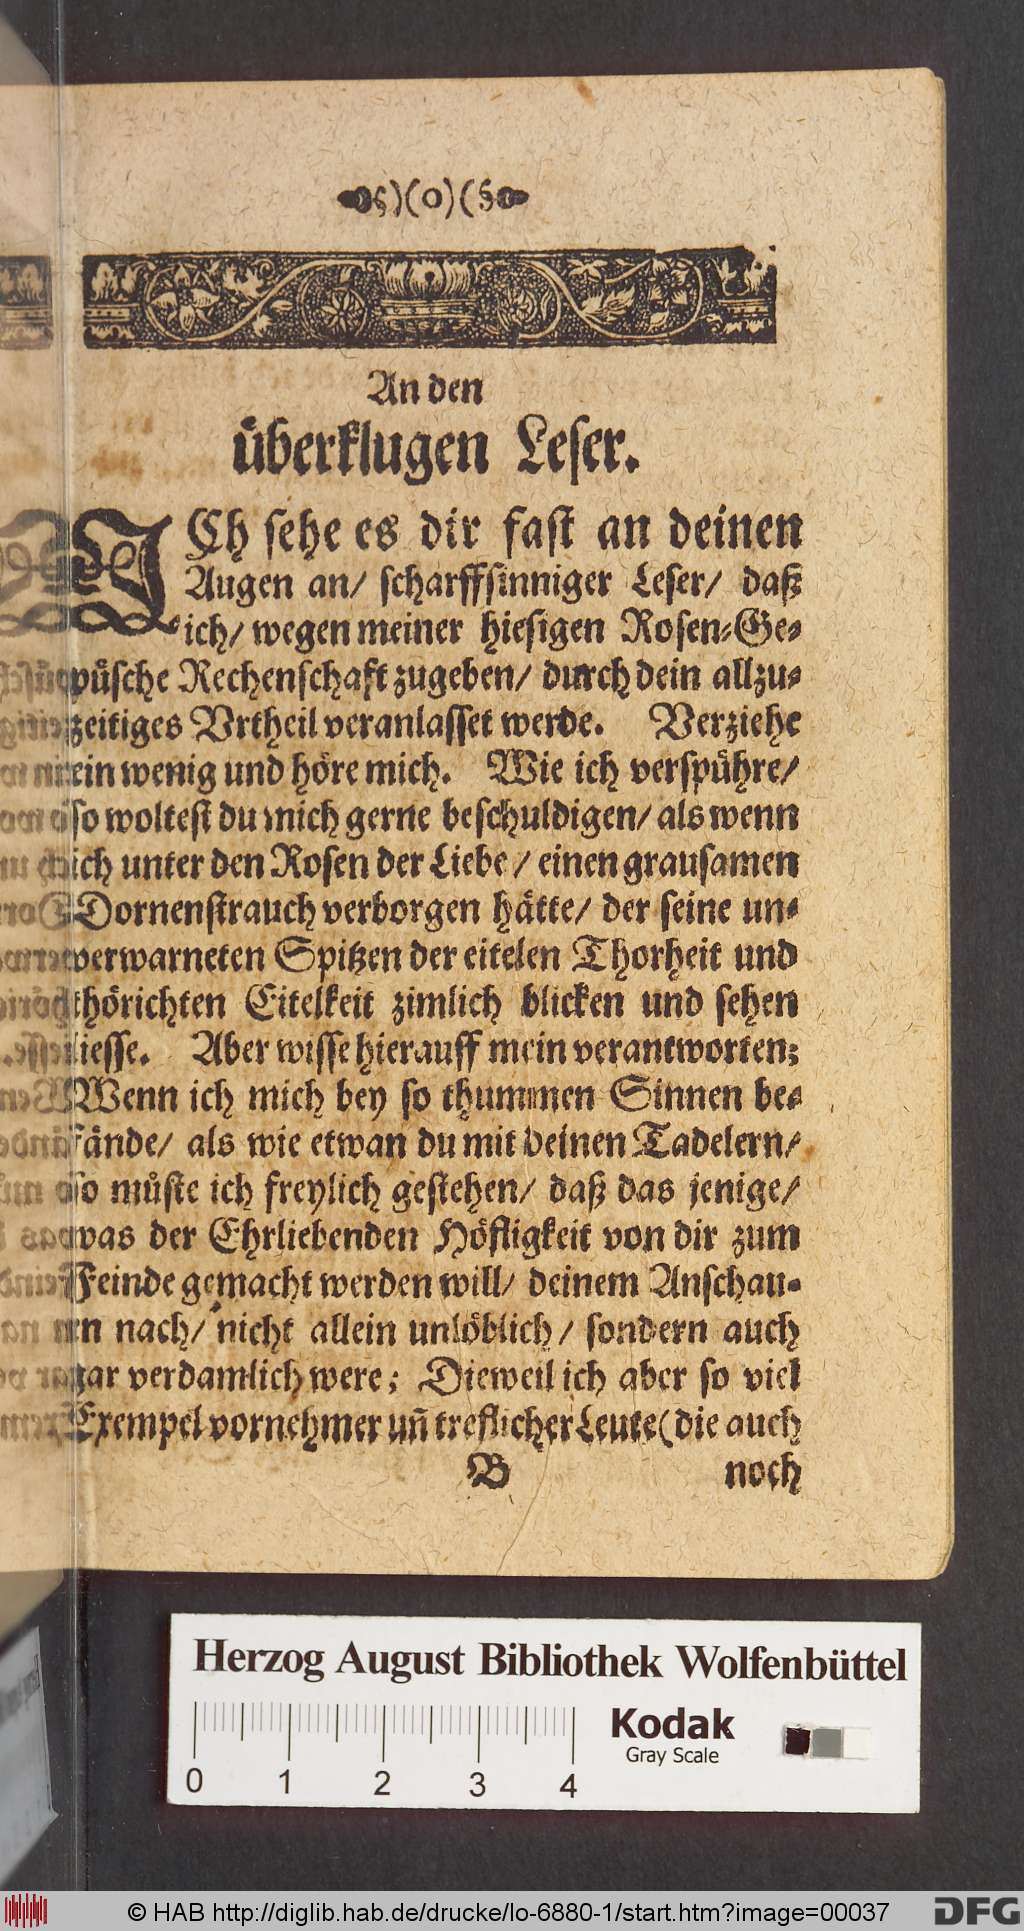 §)(o)(§
An den
uͤberklugen Leser.
ICh sehe es dir fast an deinen
Augen an/ scharffsinniger Leser/ daß
ich/ wegen meiner hiesigen Rosen-Ge-
puͤsche Rechenschaft zugeben/ durch dein allzu-
zeitiges Vrtheil veranlasset werde. Verziehe
ein wenig und hoͤre mich. Wie ich verspuͤhre/
so woltest du mich gerne beschuldigen/ als wenn
ich unter den Rosen der Liebe/ einen grausamen
Dornenstrauch verborgen haͤtte/ der seine un-
verwarneten Spitzen der eitelen Thorheit und
thoͤrichten Eitelkeit zimlich blicken und sehen
liesse. Aber wisse hierauff mein verantworten;
Wenn ich mich bey so thummen Sinnen be-
faͤnde/ als wie etwan du mit deinen Tadelern/
so muͤste ich freylich gestehen/ daß das jenige/
was der Ehrliebenden Hoͤfligkeit von dir zum
Feinde gemacht werden will/ deinem Anschau-
en nach/ nicht allein unloͤblich/ sondern auch
gar verdamlich were; Dieweil ich aber so viel
Exempel vornehmer uñ treflicher Leute (die auch
B noch
Herzog August Bibliothek Wolfenbüttel
Kodak
Gray Scale
0 1 2 3 4
© HAB http://diglib.hab.de/drucke/lo-6880-1/start.htm?image=00037
DFG